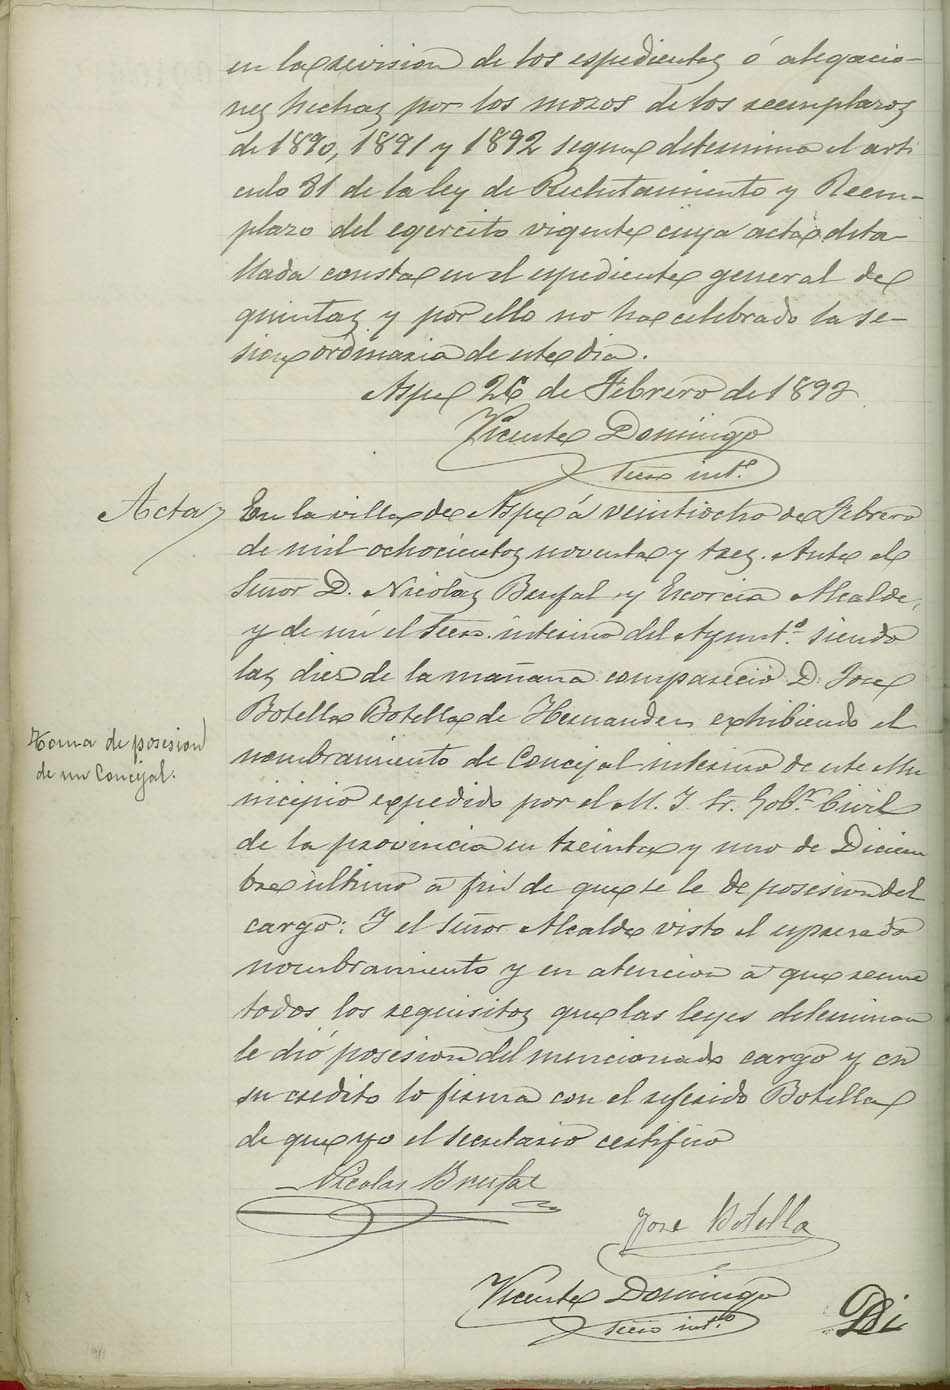 en la revision de los espedientes ó alegacio-
nes hechas por los mozos de los reemplazos
de 1890, 1891 y 1892 segun determina el arti
culo 81 de la ley de Reclutamiento y Reem-
plazo del egercito vigente cuya acta deta-
llada consta en el espediente general de
quintas y por ello no ha celebrado la se-
sion ordinaria de este dia.
Aspe 26 de Febrero de 1893
Vicente Domingo
Secro intº.
Acta
En la villa de Aspe á veintiocho de Febrero
de mil ochocientos noventa y tres. Ante el
Señor D. Nicolas Brufal y Escorcia Alcalde,
y de mí el Secro. interino del Ayuntº. siendo
las diez de la mañana compareció D. Jose
Botella Botella de Hernandez exhibiendo el
Toma de posesion
de un Concejal.
nombramiento de Concejal interino de este Mu
nicipio expedido por el M. I. Sr. Gobr. Civil
de la provincia en treinta y uno de Diciem
bre último á fin de que se le de posesion del
cargo: Y el Señor Alcalde visto el espresado
nombramiento y en atencion á que reune
todos los requisitos que las leyes determinan
le dió posesion del mencionado cargo y en
su credito lo firma con el referido Botella
de que yo el secretario certifico
Nicolas Brufal
Jose Botella
Vicente Domingo
Secro intº